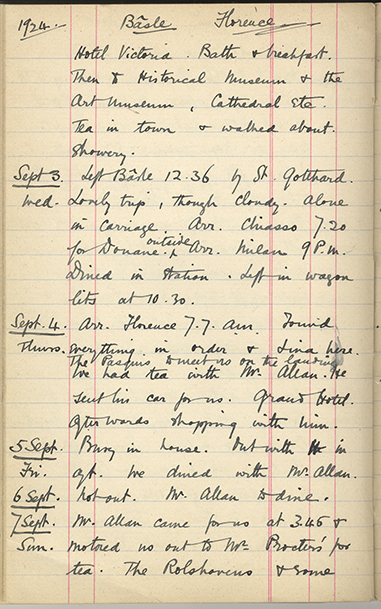 1924. Bâsle Florence
Hotel Victoria. Bath & breakfast.
Then to Historical Museum & the
Art Museum, Cathedral etc.
Tea in town & walked about.
Showery.
Sept 3. Left Bâsle 12.36 by St. Gotthard.
Wed. Lovely trip, though cloudy. Alone
in carriage. Arr. Chiasso 7.20
outside
for Douane. Arr. Milan 9 P.m.
Dined in Station. Left in wagon
lits at 10.30.
Sept. 4. Arr. Florence 7.7. am. Found
Thurs. everything in order & Lina here.
The to meet us on the landing
We had tea with Mr. Allan. He
sent his car for us. Grand Hotel.
Afterwards shopping with him.
5 Sept. Busy in house. Out with in
Fri. aft. We dined with Mr. Allan.
6 Sept. Not out. Mr. Allan to dine.
7 Sept. Mr. Allan came for us at 3.45 &
Sun. motored us out to Mrs Procter's for
tea. The Rolshovens & some